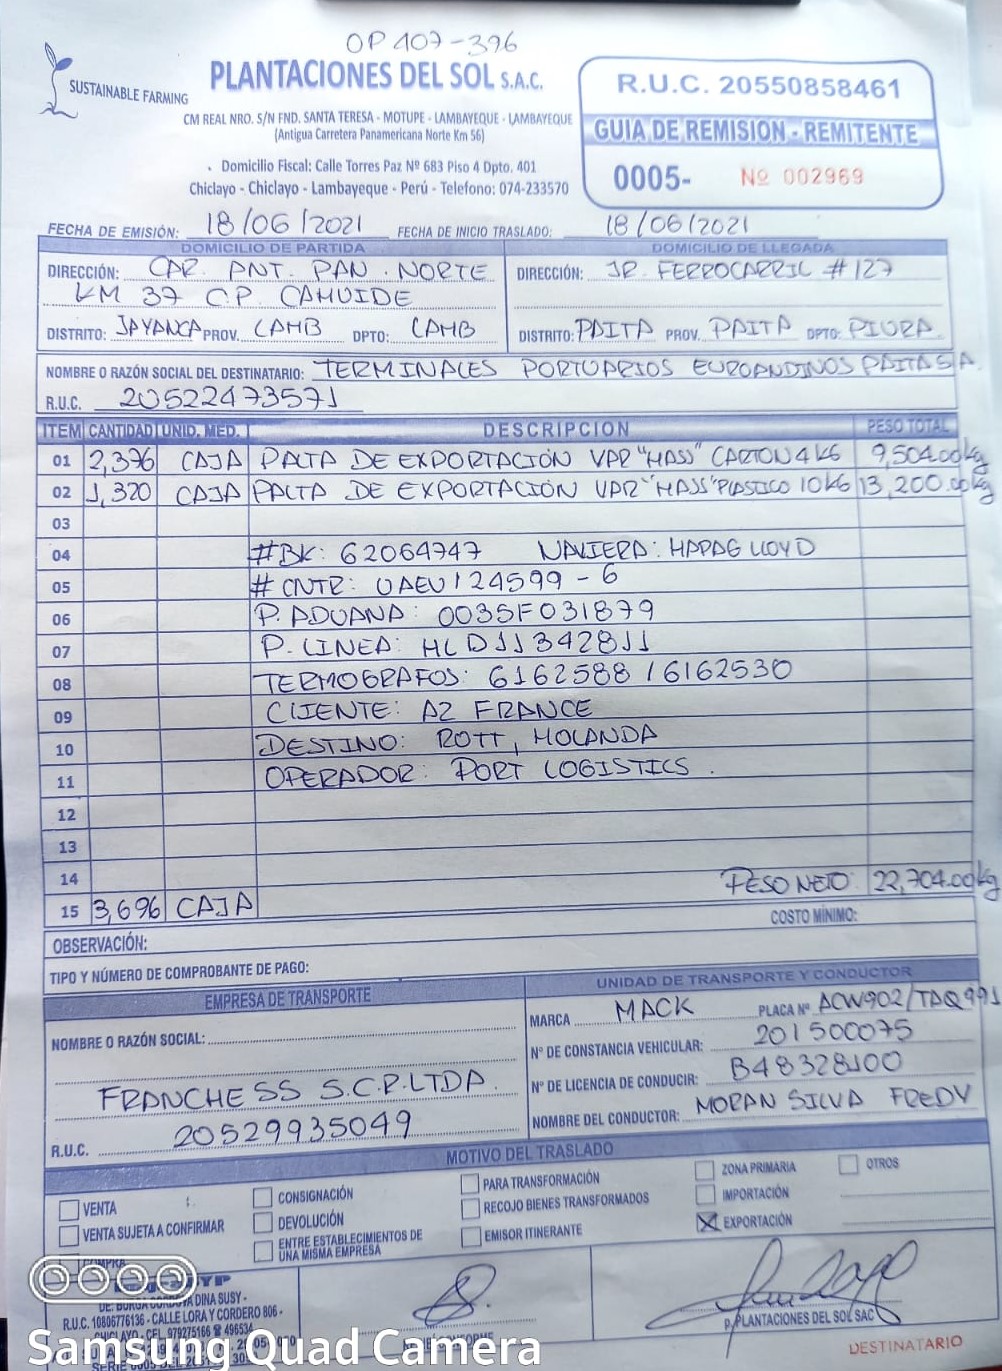 OP 407-396
SUSTAINABLE FARMING
PLANTACIONES DEL SOL S.A.C.
CM REAL NRO. S/N FND. SANTA TERESA - MOTUPE - LAMBAYEQUE - LAMBAYEQUE
(Antigua Carretera Panamericana Norte Km 56)
Domicilio Fiscal: Calle Torres Paz Nº 683 Piso 4 Dpto. 401
Chiclayo - Chiclayo - Lambayeque - Perú - Telefono: 074-233570
R.U.C. 20550858461
GUIA DE REMISION - REMITENTE
0005- Nº 002969
FECHA DE EMISIÓN: 18/06/2021 FECHA DE INICIO TRASLADO: 18/06/2021
DOMICILIO DE PARTIDA
DIRECCIÓN: CAR. PNT. PAN. NORTE
KM 37 C.P. CAHUIDE
DISTRITO: JAYANCA PROV. LAMB DPTO: LAMB
DOMICILIO DE LLEGADA
DIRECCIÓN: JR. FERROCARRIL #127
DISTRITO: PAITA PROV. PAITA DPTO: PIURA
NOMBRE O RAZÓN SOCIAL DEL DESTINATARIO: TERMINALES PORTUARIOS EUROANDINOS PAITA S.A.
R.U.C. 20522473571
ITEM CANTIDAD UNID. MED. DESCRIPCION PESO TOTAL
01 2,376 CAJA PALTA DE EXPORTACIÓN VAR "HASS" CARTON 4 KG 9,504.00kg
02 1,320 CAJA PALTA DE EXPORTACIÓN VAR "HASS" PLASTICO 10KG 13,200.00kg
03
04 #BK: 62064747 NAVIERA: HAPAG LLOYD
05 # CNTR: UAEU 124599-6
06 P. ADUANA: 0035F031879
07 P. LINEA: HLD11342811
08 TERMOGRAFOS: 6162588 / 6162530
09 CLIENTE: AZ FRANCE
10 DESTINO: ROTT, HOLANDA
11 OPERADOR: PORT LOGISTICS.
12
13
14 PESO NETO: 22,704.00kg
15 3,696 CAJA
COSTO MÍNIMO:
OBSERVACIÓN:
TIPO Y NÚMERO DE COMPROBANTE DE PAGO:
EMPRESA DE TRANSPORTE
NOMBRE O RAZÓN SOCIAL:
FRANCHESS S.C.R.LTDA.
R.U.C. 20529935049
UNIDAD DE TRANSPORTE Y CONDUCTOR
MARCA MACK PLACA Nº ACW902/TAQ991
Nº DE CONSTANCIA VEHICULAR: 201500075
Nº DE LICENCIA DE CONDUCIR: B48328100
NOMBRE DEL CONDUCTOR: MORAN SILVA FREDY
MOTIVO DEL TRASLADO
VENTA
VENTA SUJETA A CONFIRMAR
COMPRA
CONSIGNACIÓN
DEVOLUCIÓN
ENTRE ESTABLECIMIENTOS DE
UNA MISMA EMPRESA
PARA TRANSFORMACIÓN
RECOJO BIENES TRANSFORMADOS
EMISOR ITINERANTE
ZONA PRIMARIA
IMPORTACIÓN
EXPORTACIÓN
OTROS
DINA SUSY -
R.U.C. 10806776136 - CALLE LORA Y CORDERO 806 -
CHICLAYO - CEL. 979275166 ☎ 496534
P. PLANTACIONES DEL SOL SAC
DESTINATARIO
Samsung Quad Camera